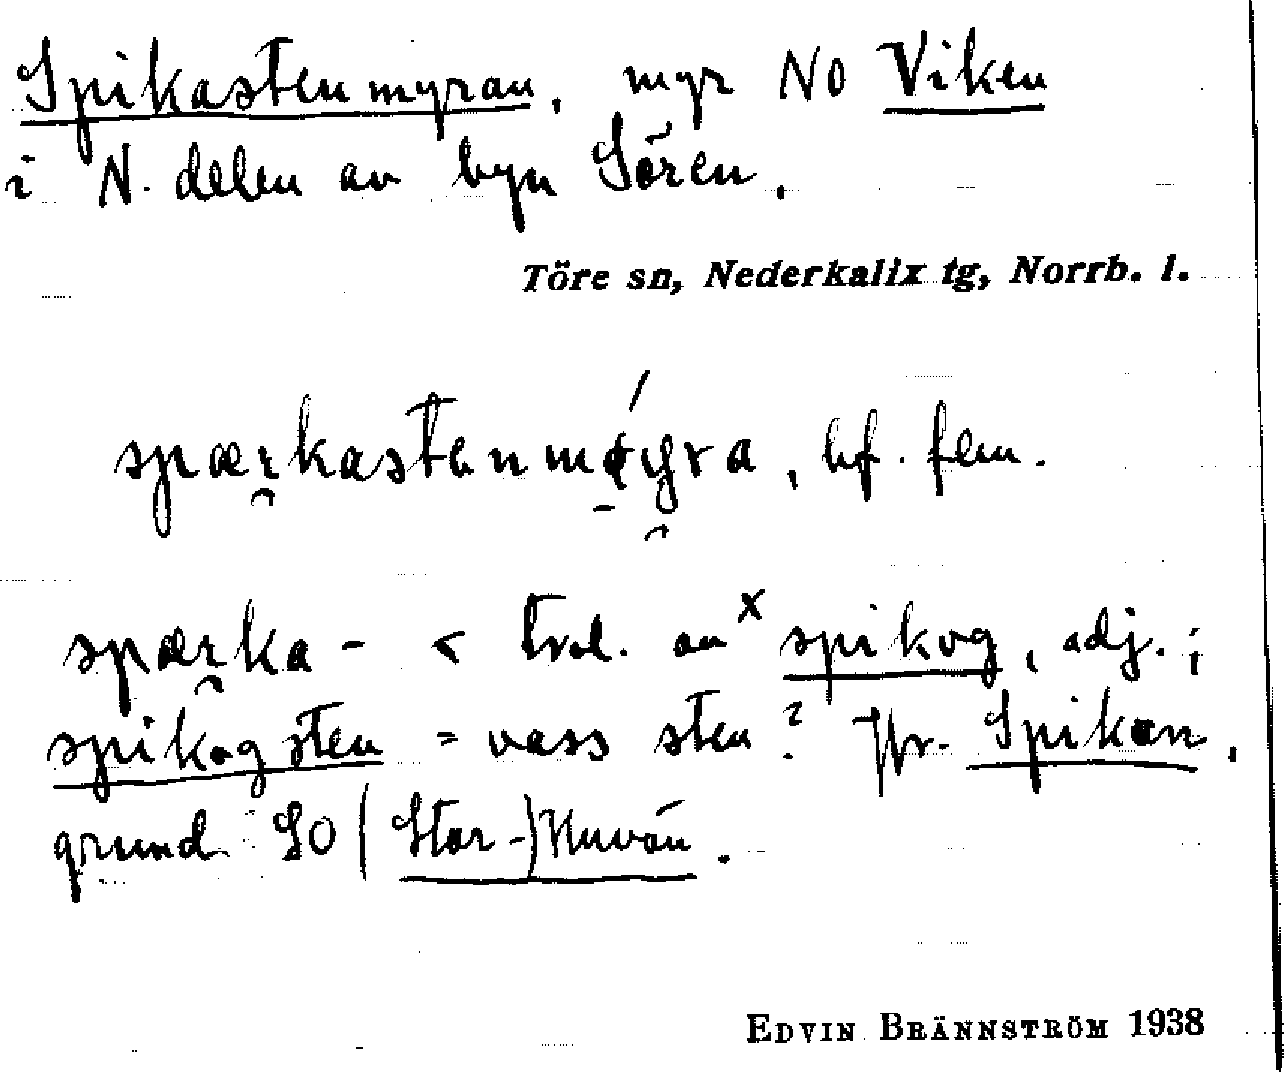 Spikastenmyran, myr NO Viken
i N. delen av byn Sören.
Töre sn, Nederkalix tg, Norrb. l.
spærkastenmöyra, bf. fem.
spærka- < trol. av × spikog, adj.;
spikog sten = vass sten? Jfr. Spiken,
grund SO (Stor-)Huvön.
EDVIN BRÄNNSTRÖM 1938